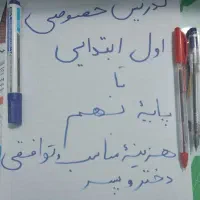 تدریس خصوصی
اول ابتدایی
تا
پایهٔ نهم
هزینهٔ مناسب و توافقی
دختر و پسر